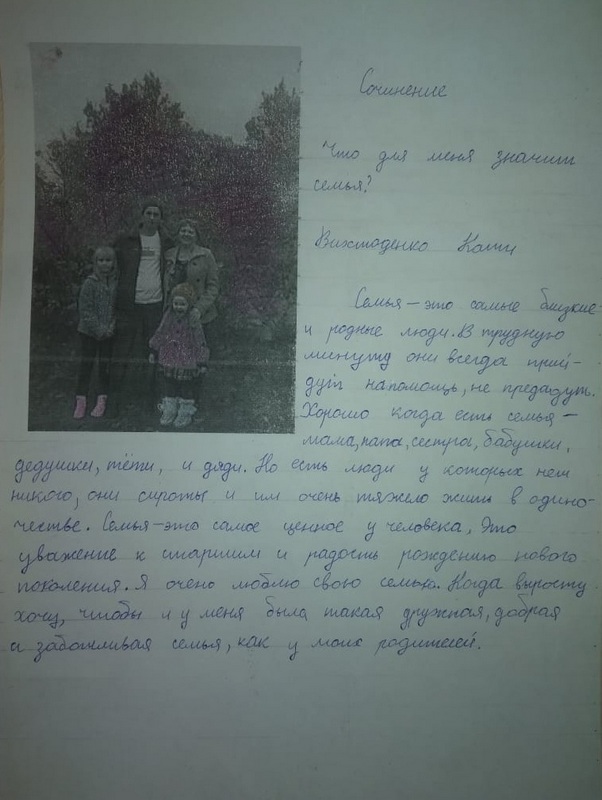 Сочинение
Что для меня значит
семья?
Кати
Семья – это самые близкие
и родные люди. В трудную
минуту они всегда прий-
дут напомощь, не предадут.
Хорошо когда есть семья –
мама, папа, сестра, бабушки,
дедушки, тёти, и дяди. Но есть люди у которых нет
никого, они сироты и им очень тяжело жить в одино-
честве. Семья – это самое ценное у человека, Это
уважение к старшим и радость рождению нового
поколения. Я очень люблю свою семью. Когда вырасту
хочу, чтобы и у меня была такая дружная, добрая
и заботливая семья, как у моих родителей.